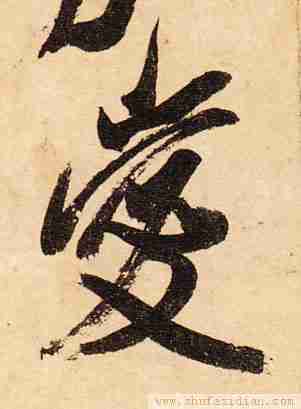 愛
www.shufazidian.com